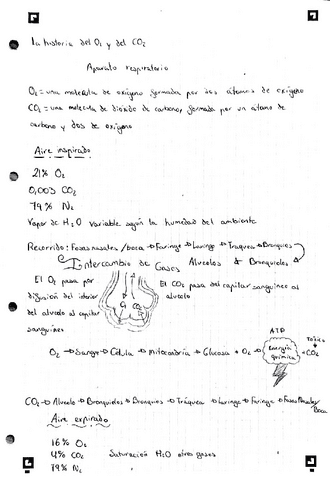 La historia del O₂ y del CO₂
Aparato respiratorio
O₂ = una molécula de oxígeno formada por dos átomos de oxígeno
CO₂ = una molecula de dioxido de carbono, formada por un átomo de
carbono y dos de oxígeno
Aire inspirado
21% O₂
0,003 CO₂
79% N₂
Vapor de H₂O variable según la humedad del ambiente
Recorrido: Fosas nasales / boca → Faringe → Laringe → Traquea → Bronquios
Intercambio de Gases Alveolos ← Bronquiolos ←
El O₂ pasa por
difusión del interior
del alveolo al capilar
sanguíneo
O₂ CO₂
El CO₂ pasa del capilar sanguíneo al
alveolo
ATP
O₂ → Sangre → Célula → Mitocondria → Glucosa + O₂ → Energía química + CO₂
Tóxico
CO₂ → Alveolo → Bronquiolos → Bronquios → Tráquea → Laringe → Faringe → Fosas Nasales/
Boca
Aire expirado
16% O₂
4% CO₂ Saturación H₂O otros gases
79% N₂